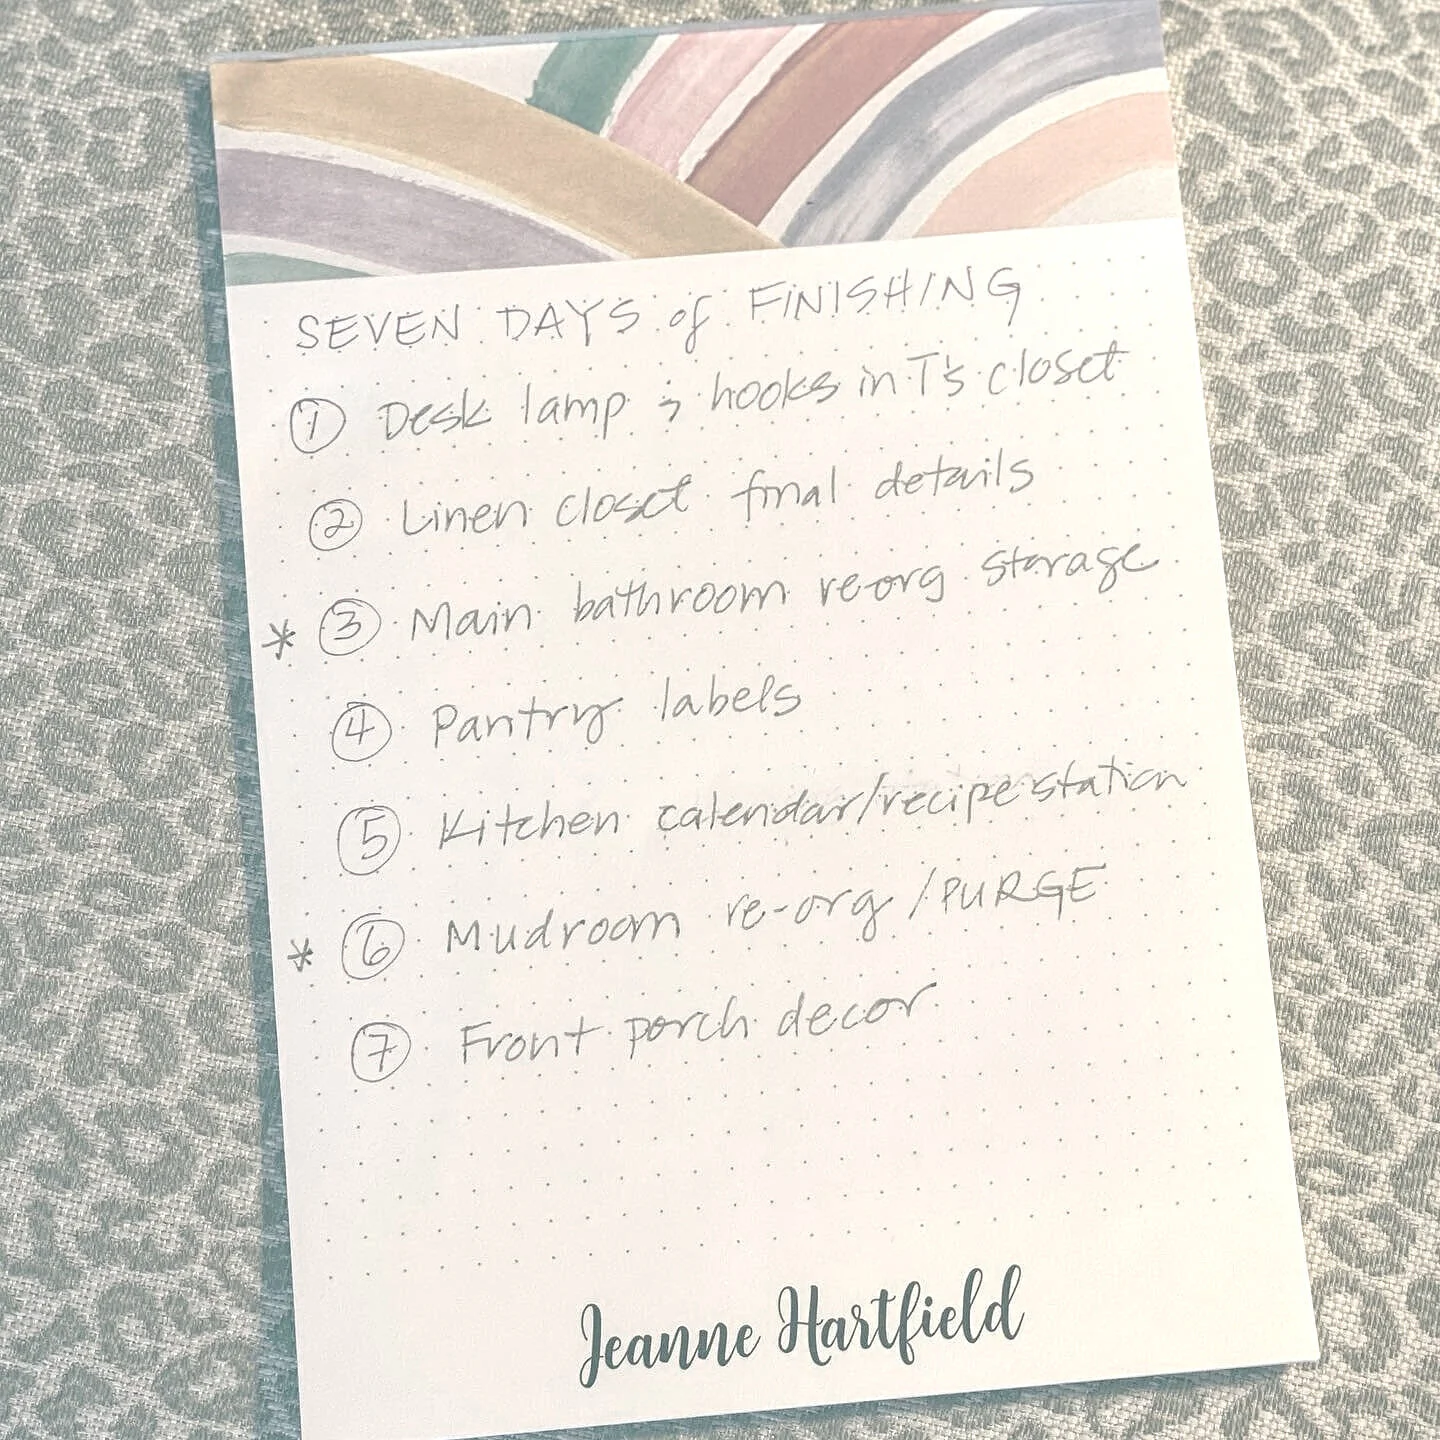 SEVEN DAYS of FINISHING
① Desk lamp ; hooks in T's closet
② Linen closet final details
* ③ Main bathroom re-org storage
④ Pantry labels
⑤ Kitchen calendar/recipe station
* ⑥ Mudroom re-org / PURGE
⑦ Front porch decor
Jeanne Hartfield